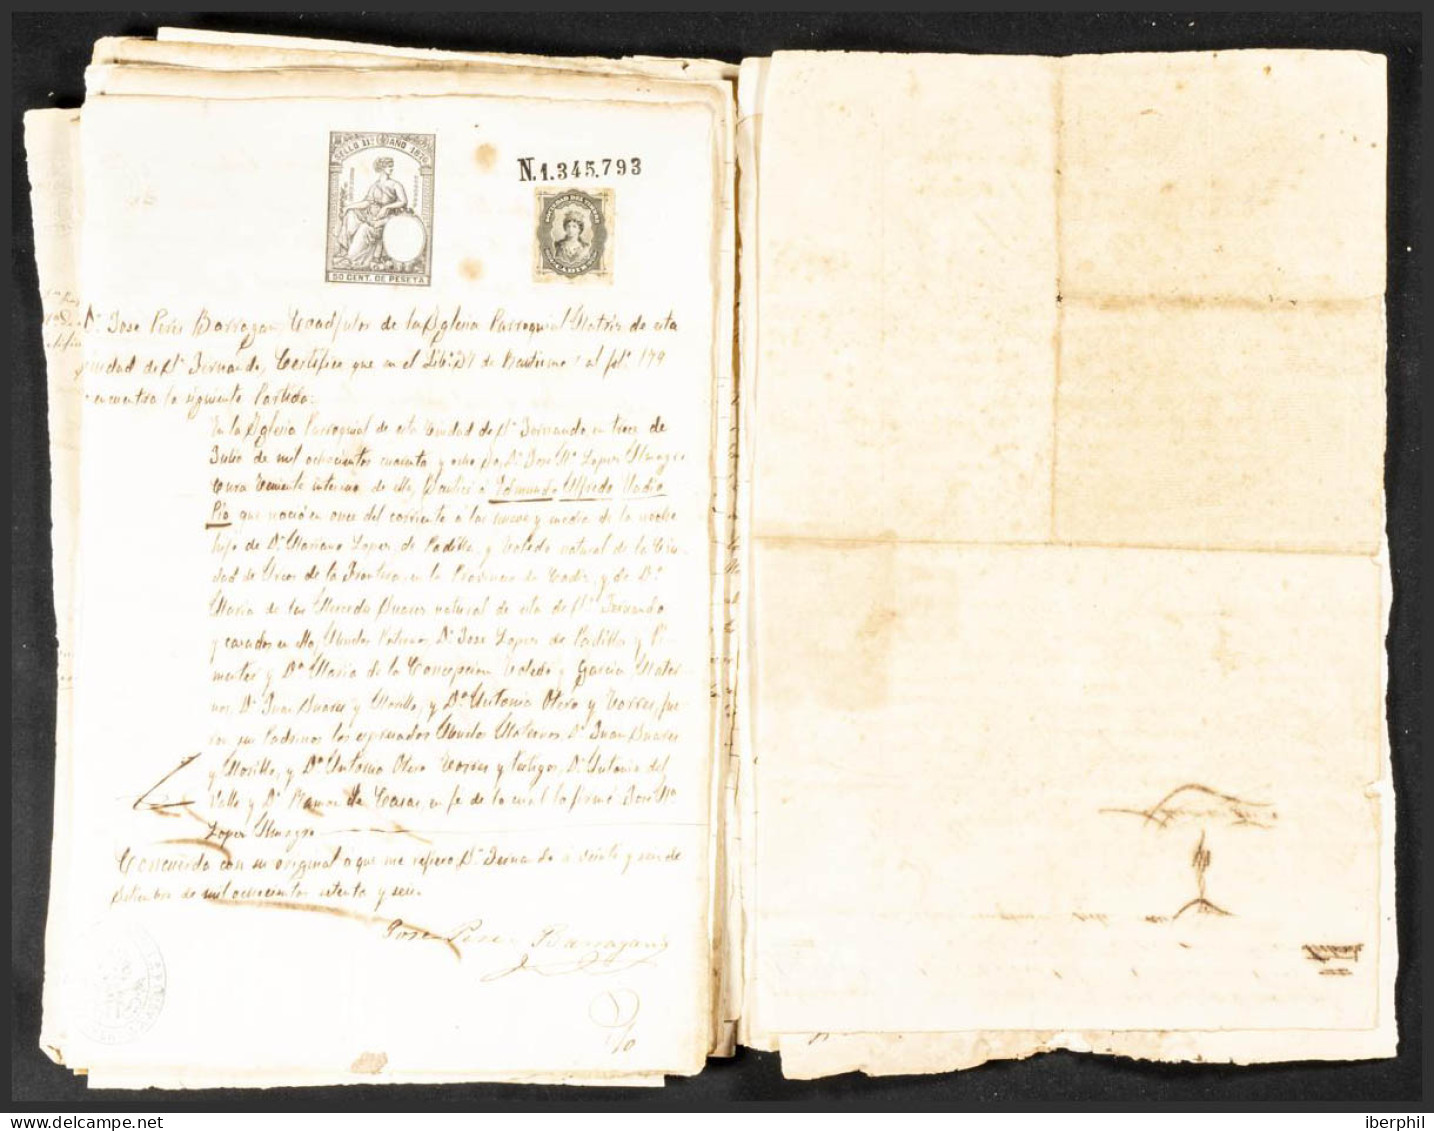 SELLO 11º AÑO 1876
50 CENT. DE PESETA
N.1.345.793
SOCIEDAD DEL TIMBRE
CADIZ
Dn. Jose Peres Barragan, Coadjutor de la Iglesia Parroquial Matris de esta
ciudad de Sn. Fernando, Certifico que en el Lib. de Bautismo al fol. 179
encuentra la siguiente Partida:
En la Iglesia Parroquial de esta Ciudad de Sn. Fernando en trece de
Julio de mil ochocientos cuarenta y ocho yo Dn. Jose Ma. Lopez Almagro
Cura Teniente interino de ella, Bautice á Edmundo Alfredo
Pio que nació en once del corriente a las nueve y media de la noche
hijo de Dn. Mariano Lopez de Padilla, y Toledo natural de la Ciu-
dad de Arcos de la Frontera, en la Provincia de Cadiz, y de Da.
Maria de las Mercedes Suares natural de esta de Sn. Fernando
y casados en ella, Abuelos Paternos, Dn. Jose Lopez de Padilla y Pi
mentel y Da. Maria de la Concepcion Toledo y Garcia Mater-
nos, Dn. Juan Suares y Morillo, y Da. Antonia Otero y Torres, fue
ron sus Padrinos los expresados Abuelos Maternos, Dn. Juan Suares
y Morillo, y Da. Antonia Otero Torres y testigos, Dn. Antonio del
Valle y Dn. Ramon de Casas, en fe de lo cual lo firmé Jose Ma.
Lopez Almagro
Concuerda con su original á que me refiero, Sn. Fernando á veinte y seis de
Setiembre de mil ochocientos setenta y seis.
Jose Peres Barragan
iberphil